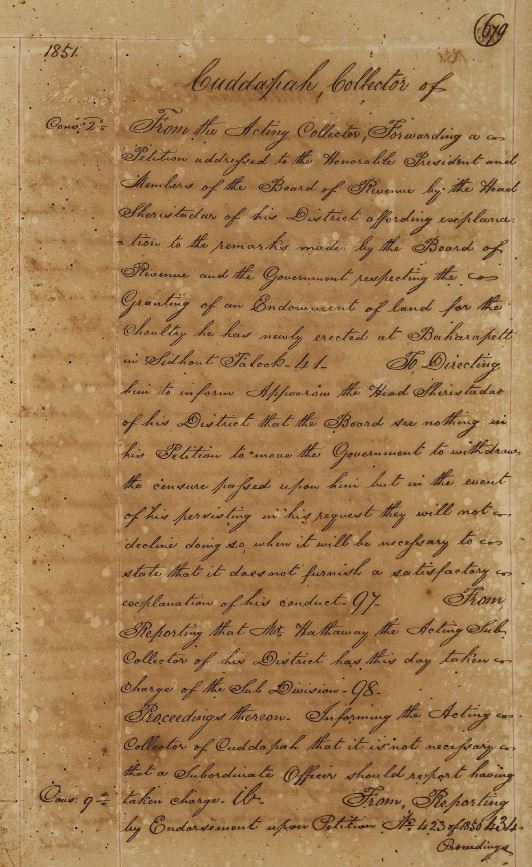 679
1851.
Cuddapah, Collector of
Cons: 2d From the Acting Collector, Forwarding a
Petition addressed to the Honorable President and
Members of the Board of Revenue by the Head
Sheristadar of his District affording explana:
=tion to the remarks made by the Board of
Revenue and the Government respecting the
Granting of an Endowment of land for the
Choultry he has newly erected at Baharapett
in Sidhout Talook - 41 - To, Directing
him to inform Appoorow the Head Sheristadar
of his District that the Board see nothing in
his Petition to move the Government to withdraw
the censure passed upon him but in the event
of his persisting in his request they will not
decline doing so, when it will be necessary to
state that it does not furnish a satisfactory
explanation of his conduct - 97 - From
Reporting that Mr. Hathaway the Acting Sub
Collector of his District has this day taken
charge of the Sub Division - 98 -
Proceedings thereon - Informing the Acting
Collector of Cuddapah that it is not necessary
that a Subordinate Officer should report having
Cons: 9th taken charge. Ib. From, Reporting
by Endorsement upon Petition No. 423 of 1850 434.
Proceedings